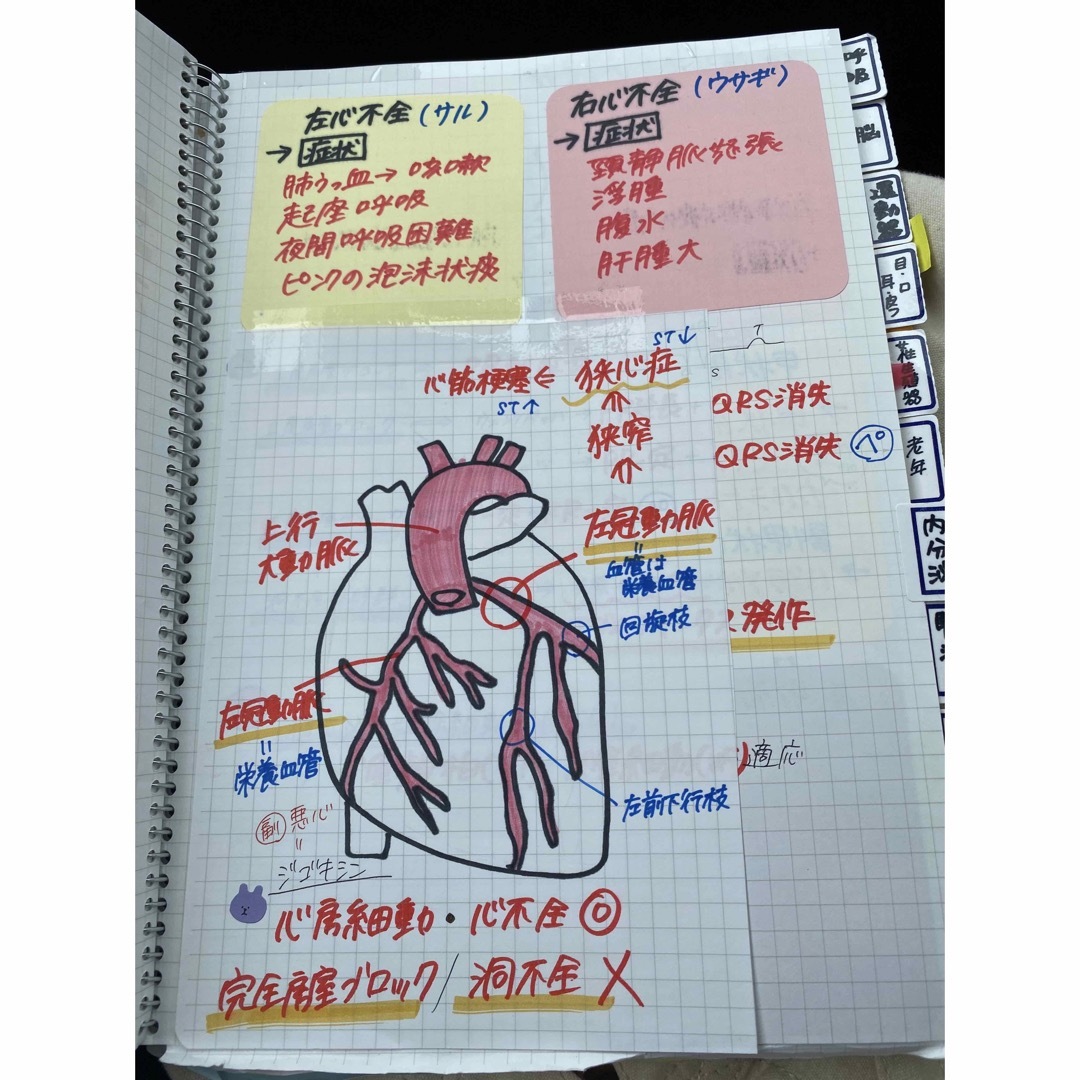 左心不全(サル)
→症状
肺うっ血→咳嗽
起座呼吸
夜間呼吸困難
ピンクの泡沫状痰
右心不全(ウサギ)
→症状
頸静脈怒張
浮腫
腹水
肝腫大
ST↓
心筋梗塞⇐狭心症
ST↑
⇑
狭窄
⇑
左冠動脈
=
血管は
栄養血管
回旋枝
上行
大動脈
左冠動脈
=
栄養血管
左前下行枝
副 悪心
=
ジゴキシン
心房細動・心不全◎
完全房室ブロック/洞不全✗
T
S
QRS消失
QRS消失 ペ
発作
適応
呼吸
脳
運動器
目・口
耳・皮フ
性生殖器
老年
内分泌